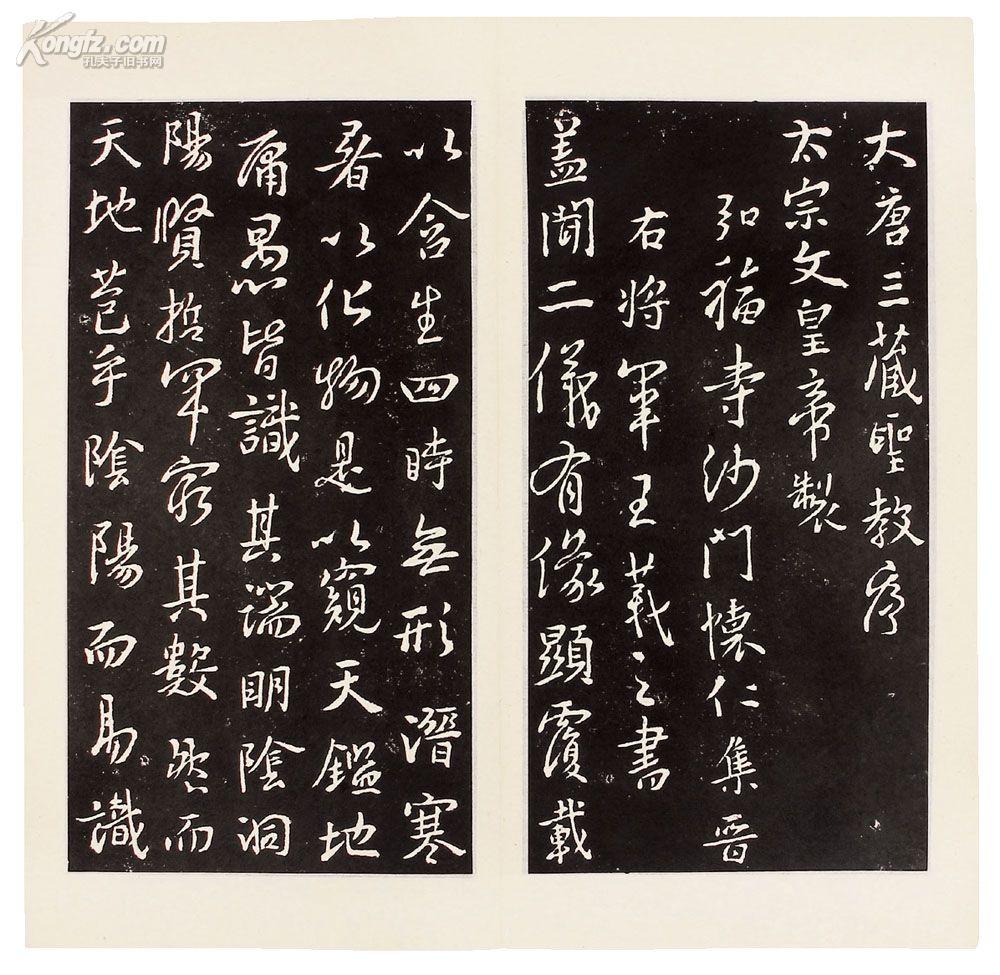 Kongfz.com
孔夫子旧书网
大唐三藏聖教序
太宗文皇帝製
弘福寺沙門懷仁集晉
右將軍王羲之書
盖聞二儀有像顯覆載
以含生四時無形潛寒
暑以化物是以窺天鑑地
庸愚皆識其端明陰洞
陽賢哲罕窮其數然而
天地苞乎陰陽而易識